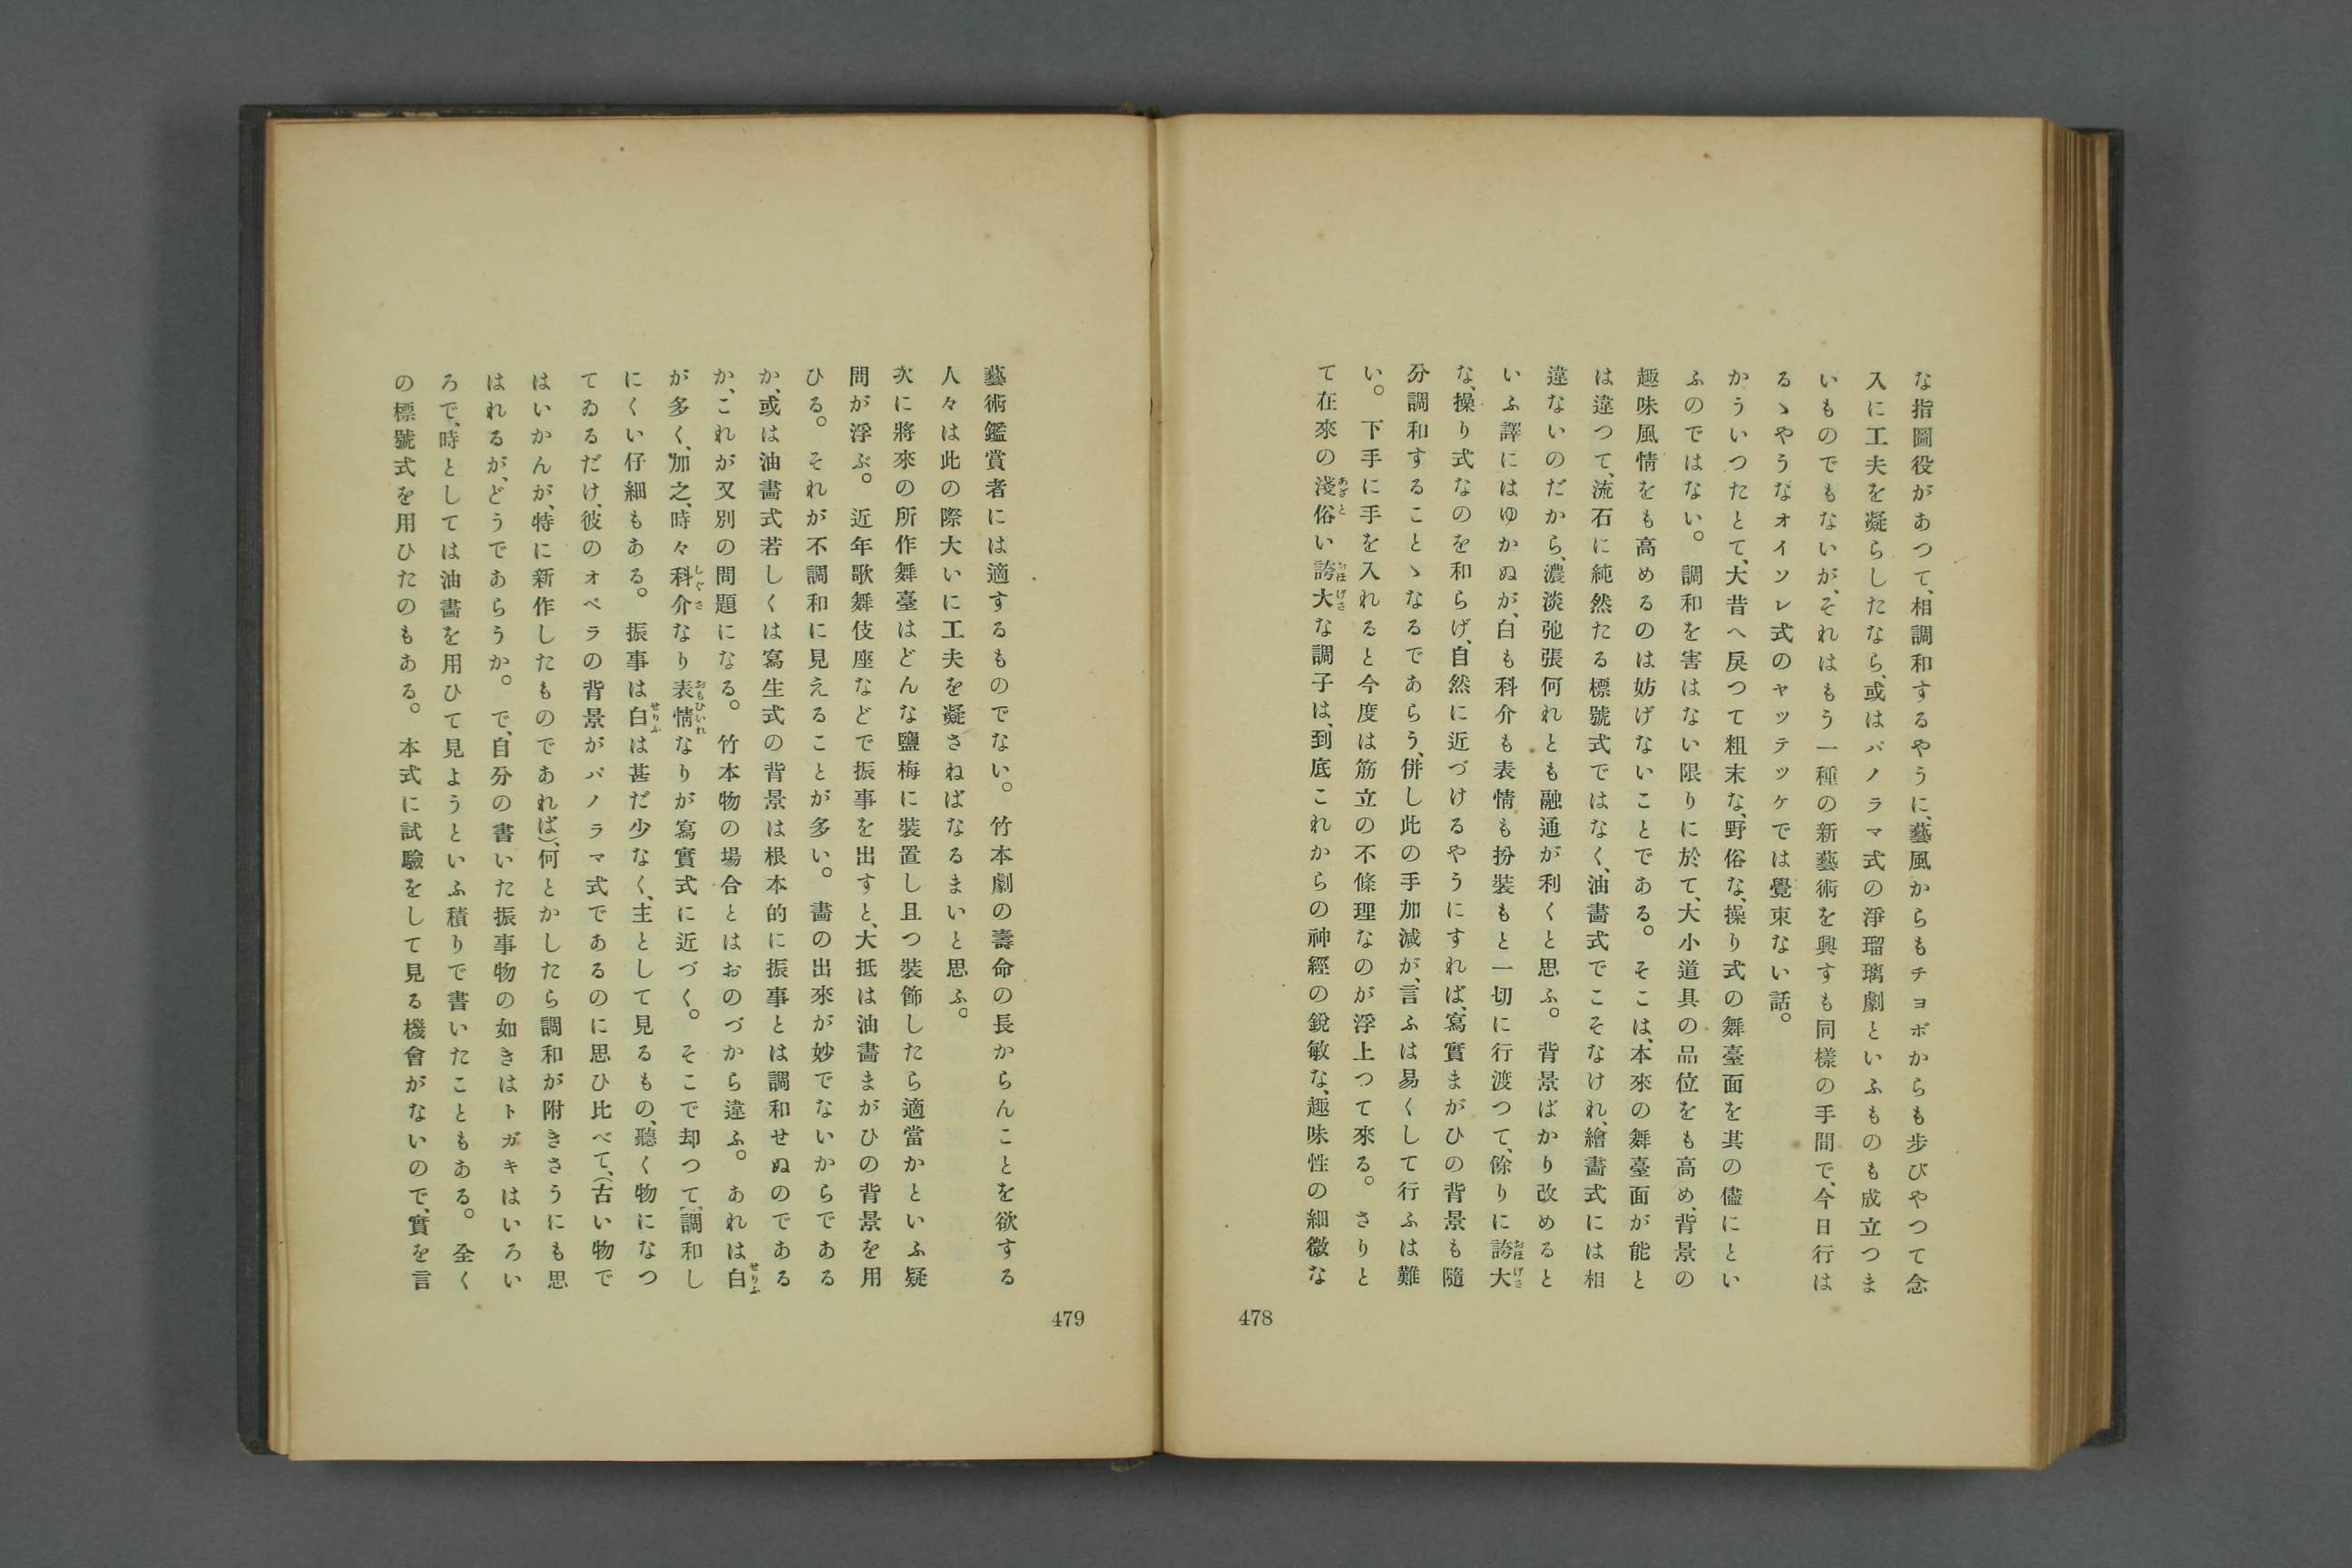 な指圖役があつて、相調和するやうに、藝風からもチヨボからも步びやつて念
入に工夫を凝らしたなら、或はパノラマ式の淨瑠璃劇といふものも成立つま
いものでもないが、それはもう一種の新藝術を興すも同樣の手間で、今日行は
るゝやうなオイソレ式のヤッテッケでは覺束ない話。
かういつたとて、大昔へ戻つて粗末な、野俗な、操り式の舞臺面を其の儘にとい
ふのではない。調和を害はない限りに於て、大小道具の品位をも高め、背景の
趣味風情をも高めるのは妨げないことである。そこは、本來の舞臺面が能と
は違つて、流石に純然たる標號式ではなく、油畫式でこそなけれ、繪畫式には相
違ないのだから、濃淡弛張何れとも融通が利くと思ふ。背景ばかり改めると
いふ譯にはゆかぬが、白も科介も表情も扮裝もと一切に行渡つて、餘りに誇大
な、操り式なのを和らげ、自然に近づけるやうにすれば、寫實まがひの背景も隨
分調和することゝなるであらう、併し此の手加減が、言ふは易くして行ふは難
い。下手に手を入れると今度は筋立の不條理なのが浮上つて來る。さりと
て在來の淺俗い誇大な調子は、到底これからの神經の銳敏な、趣味性の細微な
478
藝術鑑賞者には適するものでない。竹本劇の壽命の長からんことを欲する
人々は此の際大いに工夫を凝さねばなるまいと思ふ。
次に將來の所作舞臺はどんな鹽梅に裝置し且つ裝飾したら適當かといふ疑
問が浮ぶ。近年歌舞伎座などで振事を出すと、大抵は油畫まがひの背景を用
ひる。それが不調和に見えることが多い。畫の出來が妙でないからである
か、或は油畫式若しくは寫生式の背景は根本的に振事とは調和せぬのである
か、これが又別の問題になる。竹本物の場合とはおのづから違ふ。あれは白
が多く、加之、時々科介なり表情なりが寫實式に近づく。そこで却つて調和し
にくい仔細もある。振事は白は甚だ少なく、主として見るもの、聽く物になつ
てゐるだけ、彼のオペラの背景がパノラマ式であるのに思ひ比べて、(古い物で
はいかんが、特に新作したものであれば)、何とかしたら調和が附きさうにも思
はれるが、どうであらうか。で、自分の書いた振事物の如きはトガキはいろい
ろで、時としては油畫を用ひて見ようといふ積りで書いたこともある。全く
の標號式を用ひたのもある。本式に試驗をして見る機會がないので、實を言
479